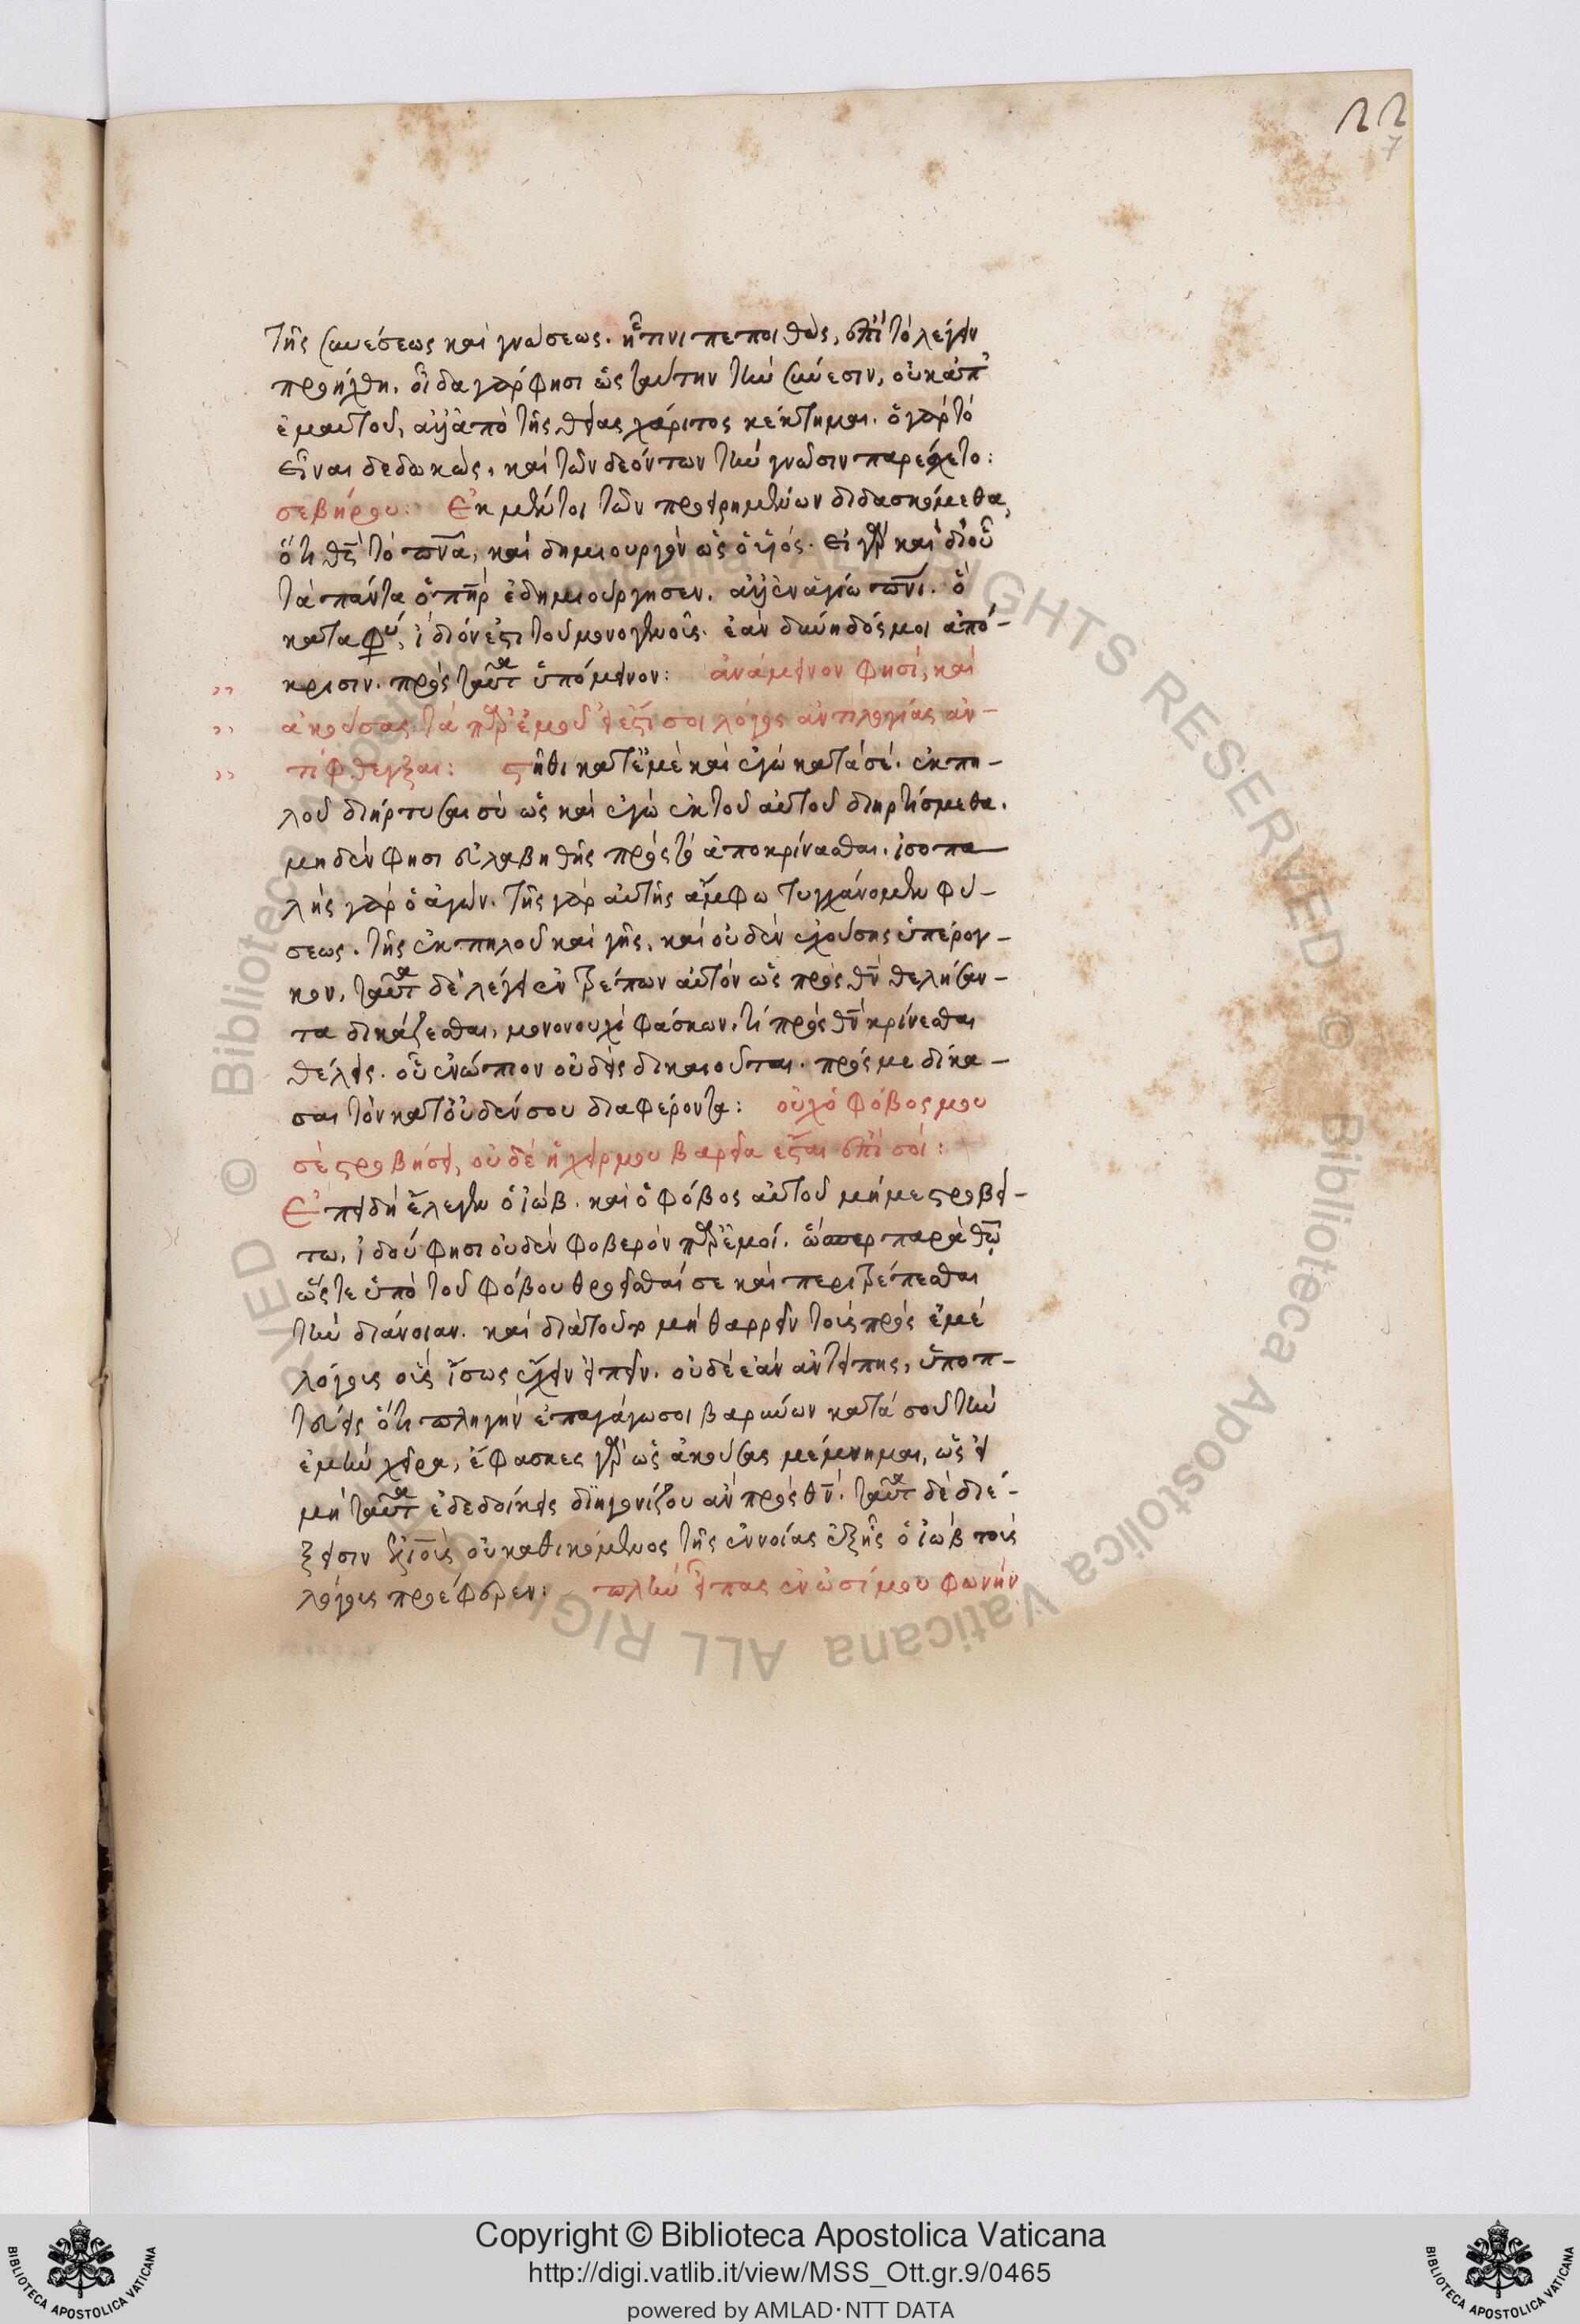 22
7
τῆς συνέσεως καὶ γνώσεως. ᾗ τινι πεποιθὼς, ἐπὶ τὸ λέγειν
προήχθη. οἶδα γάρ φησι ὡς ταύτην τὴν σύνεσιν, οὐκ ἀπ'
ἐμαυτοῦ, ἀλλ' ἀπὸ τῆς θείας χάριτος κέκτημαι. ὁ γὰρ τὸ
εἶναι δεδωκὼς, καὶ τῶν δεόντων τὴν γνῶσιν παρέσχετο:
σεβήρου: Ἐκ μέντοι τῶν προειρημένων διδασκόμεθα,
ὅτι θς τὸ πνα, καὶ δημιουργὸν ὡς ὁ υἱός. εἰ γὰρ καὶ δι' οὗ
τὰ πάντα ὁ πηρ ἐδημιούργησεν. ἀλλ' ἐν ἁγίω πνι. ὃ
κατὰ φύ, ἴδιόν ἐστι τοῦ μονογενοῦς. ἐὰν δύνῃ δός μοι ἀπό-
κρισιν. πρὸς ταῦτα ὑπόμεινον: ἀνάμεινον φησί, καὶ
ἀκούσας τὰ παρ' ἐμοῦ εἰ ἔστι σοι λόγος ἀντιλογίας ἀν-
τίφθεγξαι: στῆθι κατ' ἐμὲ καὶ ἐγὼ κατὰ σέ. ἐκ πη-
λοῦ διήρτισαι σὺ ὡς καὶ ἐγὼ ἐκ τοῦ αὐτοῦ διηρτίσμεθα.
μηδέν φησι εὐλαβηθῆς πρὸς τὸ ἀποκρίνασθαι. ἰσοπα
λὴς γὰρ ὁ ἀγών. τῆς γὰρ αὐτῆς ἄμφω τυγχάνομεν φύ-
σεως. τῆς ἐκ πηλοῦ καὶ γῆς, καὶ οὐδὲν ἐχούσης ὑπέρογ-
κον, ταῦτα δὲ λέγει ἐντρέπων αὐτὸν ὡς πρὸς θν θελήσαν-
τα δικάζεσθαι, μονονουχὶ φάσκων. τί πρὸς θν κρίνεσθαι
θέλεις. οὗ ἐνώπιον οὐδεὶς δικαιοῦται. πρός με δίκα-
σαι τὸν κατ' οὐδέν σου διαφέροντα: οὐχ ὁ φόβος μου
σὲ στροβήσει, οὐδὲ ἡ χείρ μου βαρεῖα ἔσται ἐπὶ σοί:
Ἐπειδὴ ἔλεγεν ὁ ἰώβ. καὶ ὁ φόβος αὐτοῦ μή με στροβεί-
τω, ἰδού φησι οὐδὲν φοβερὸν παρ' ἐμοί. ὥσπερ παρὰ θω
ὥστε ὑπὸ τοῦ φόβου θροεῖσθαί σε καὶ περιτρέπεσθαι
τὴν διάνοιαν. καὶ διὰ τοῦτο μὴ θαρρεῖν τοῖς πρὸς ἐμὲ
λόγοις οἷς ἴσως εἶχεν εἰπεῖν. οὐδὲ ἐὰν ἀντείπης, ὑποπ-
τεύεις ὅτι πληγὴν ἐπαγάγω σοι βαρύνων κατὰ σοῦ τὴν
ἐμὴν χεῖρα, ἔφασκες γὰρ ὡς ἀκούσας μέμνημαι, ὡς εἰ
μὴ ταῦτα ἐδεδοίκεις διηγωνίζου ἂν πρὸς θν. ταῦτα δὲ διέ-
ξεισιν οὐ καθικόμενος τῆς ἐννοίας ἐξ ἧς ὁ ἰὼβ τοὺς
λόγους προέφερεν: πλὴν εἶπας ἐν ὠσί μου φωνὴν
Copyright © Biblioteca Apostolica Vaticana
http://digi.vatlib.it/view/MSS_Ott.gr.9/0465
powered by AMLAD·NTT DATA
BIBLIOTECA APOSTOLICA VATICANA
BIBLIOTECA APOSTOLICA VATICANA
© Biblioteca Apostolica Vaticana ALL RIGHTS RESERVED © Biblioteca Apostolica Vaticana ALL RIGHTS RESERVED